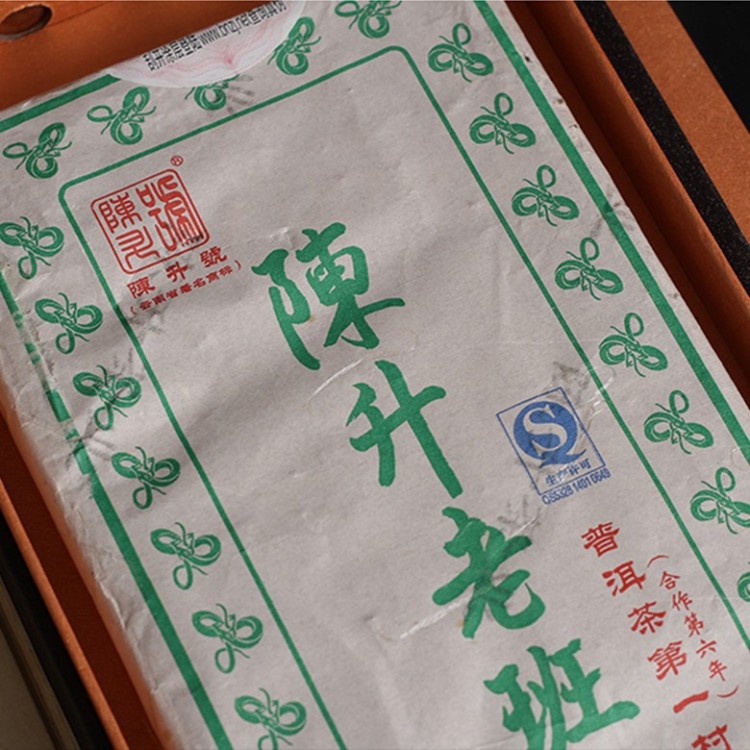 陳升號
®
陳升號
(云南省著名商标)
陳升老班
QS
生产许可
QS5328 1401 0649
普洱茶第一村
(合作第六年)